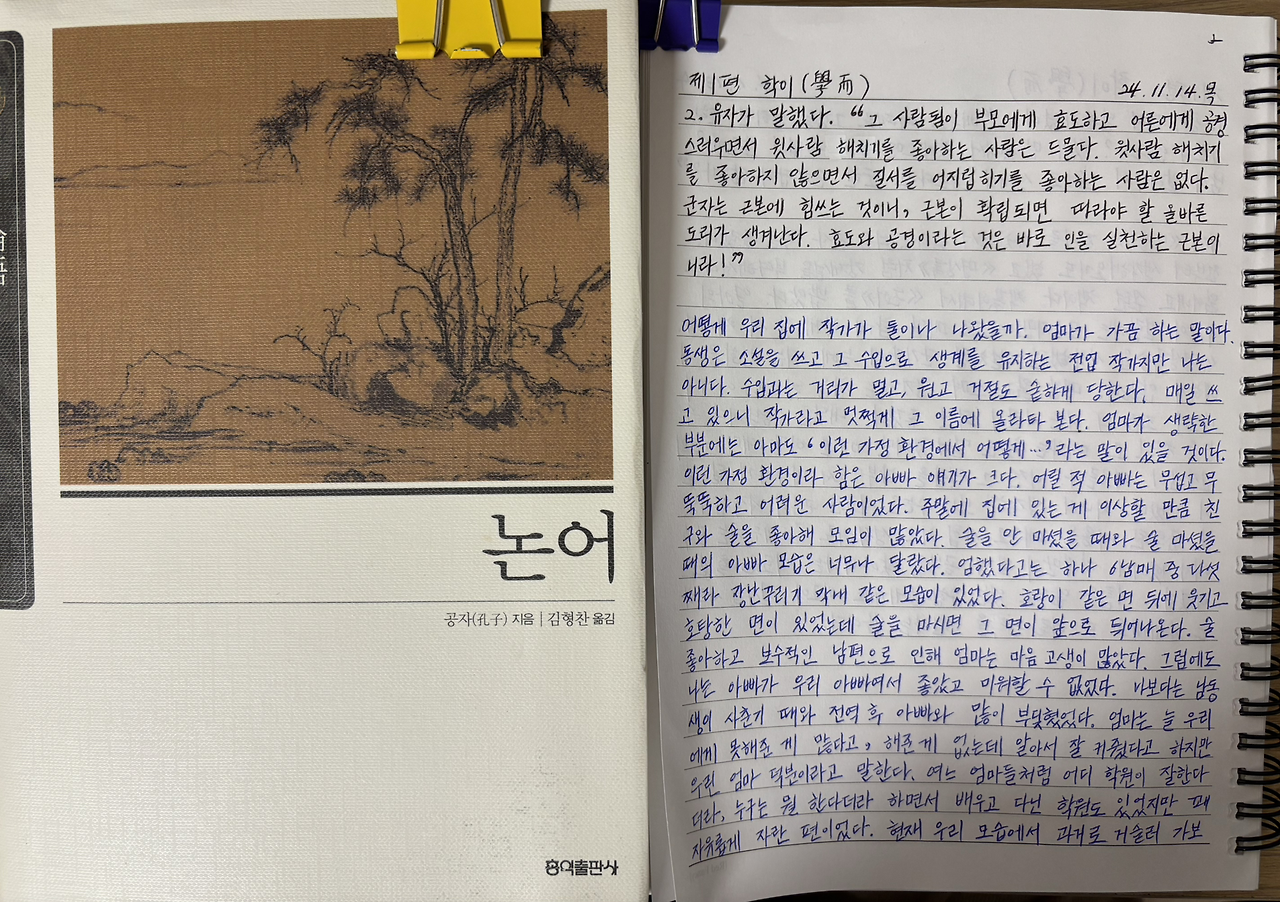 논어
공자(孔子) 지음 | 김형찬 옮김
홍익출판사
2
제1편 학이(學而) 24.11.14.목
2. 유자가 말했다. “그 사람됨이 부모에게 효도하고 어른에게 공경
스러우면서 윗사람 해치기를 좋아하는 사람은 드물다. 윗사람 해치기
를 좋아하지 않으면서 질서를 어지럽히기를 좋아하는 사람은 없다.
군자는 근본에 힘쓰는 것이니, 근본이 확립되면 따라야 할 올바른
도리가 생겨난다. 효도와 공경이라는 것은 바로 인을 실천하는 근본이
니라!”
어떻게 우리 집에 작가가 둘이나 나왔을까. 엄마가 가끔 하는 말이다.
동생은 소설을 쓰고 그 수입으로 생계를 유지하는 전업 작가지만 나는
아니다. 수입과는 거리가 멀고, 원고 거절도 숱하게 당한다. 매일 쓰
고 있으니 작가라고 멋쩍게 그 이름에 올라타 본다. 엄마가 생략한
부분에는 아마도 ‘이런 가정 환경에서 어떻게…’라는 말이 있을 것이다.
이런 가정 환경이라 함은 아빠 얘기가 크다. 어릴 적 아빠는 무섭고 무
뚝뚝하고 어려운 사람이었다. 주말에 집에 있는 게 이상할 만큼 친
구와 술을 좋아해 모임이 많았다. 술을 안 마셨을 때와 술 마셨을
때의 아빠 모습은 너무나 달랐다. 엄했다고는 하나 6남매 중 다섯
째라 장난꾸러기 막내 같은 모습이 있었다. 호랑이 같은 면 뒤에 웃기고
호탕한 면이 있었는데 술을 마시면 그 면이 앞으로 튀어나온다. 술
좋아하고 보수적인 남편으로 인해 엄마는 마음 고생이 많았다. 그럼에도
나는 아빠가 우리 아빠여서 좋았고 미워할 수 없었다. 나보다는 남동
생이 사춘기 때와 전역 후 아빠와 많이 부딪혔었다. 엄마는 늘 우리
에게 못해준 게 많다고, 해준 게 없는데 알아서 잘 커줬다고 하지만
우린 엄마 덕분이라고 말한다. 여느 엄마들처럼 어디 학원이 잘한다
더라, 누구는 뭘 한다더라 하면서 배우고 다닌 학원도 있었지만 꽤
자유롭게 자란 편이었다. 현재 우리 모습에서 과거로 거슬러 가보